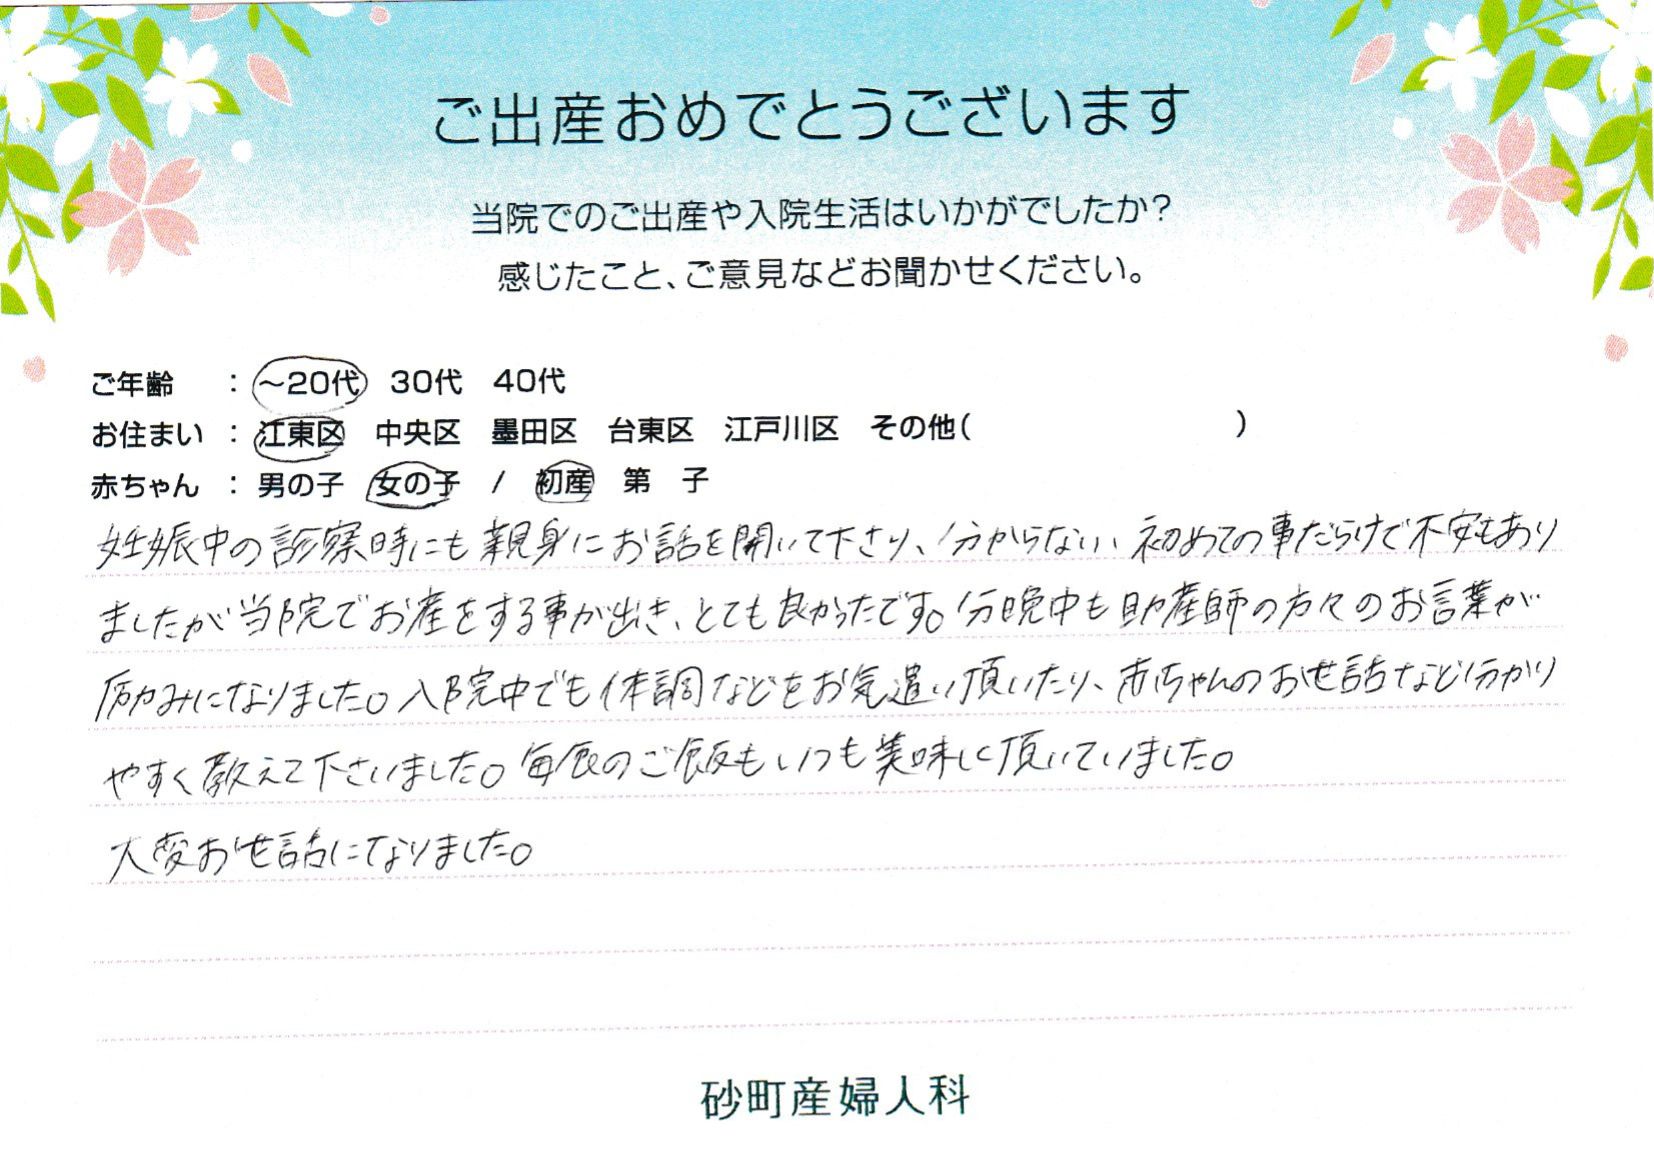 ご出産おめでとうございます
当院でのご出産や入院生活はいかがでしたか?
感じたこと、ご意見などお聞かせください。
ご年齢 : 〜20代 30代 40代
お住まい : 江東区 中央区 墨田区 台東区 江戸川区 その他( )
赤ちゃん : 男の子 女の子 / 初産 第 子
妊娠中の診察時にも親身にお話を聞いて下さり、分からない、初めての事だらけで不安もあり
ましたが当院でお産をする事が出き、とても良かったです。分娩中も助産師の方々のお言葉が
励みになりました。入院中でも体調などをお気遣い頂いたり、赤ちゃんのお世話など分かり
やすく教えて下さいました。毎食のご飯もいつも美味しく頂いていました。
大変お世話になりました。
砂町産婦人科